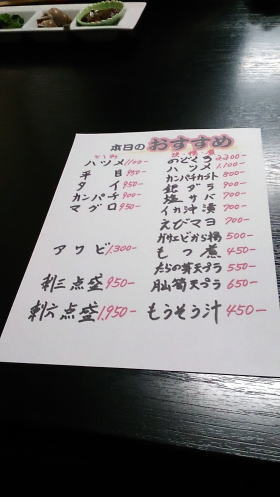 本日のおすすめ
ハツメ 1100-
平目 950-
タイ 950-
カンパチ 900-
マグロ 950-
アワビ 1.300-
刺三点盛 950-
刺六点盛 1.950-
焼揚煮
のどぐろ 2.200-
ハツメ 1.100-
カンパチカブト 800-
銀ダラ 900-
塩サバ 700-
イカ沖漬 700-
えびマヨ 700-
ガサエビから揚 500-
もつ煮 450-
たらの芽天プラ 550-
月山筍天プラ 650-
もうそう汁 450-